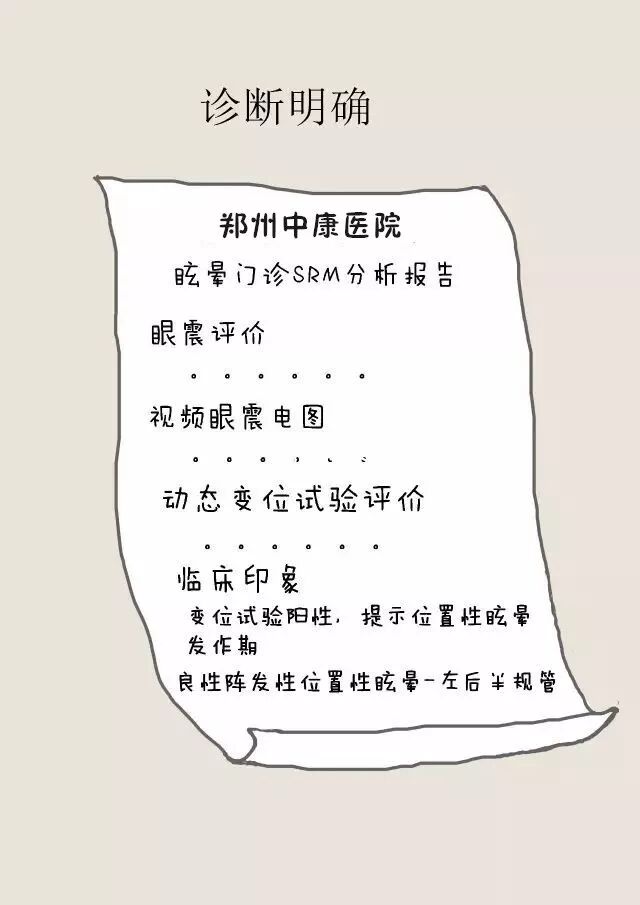 诊断明确
郑州中康医院
眩晕门诊SRM分析报告
眼震评价
。。。。。。
视频眼震电图
。。。，、。
动态变位试验评价
。。。。。。
临床印象
变位试验阳性，提示位置性眩晕
发作期
良性阵发性位置性眩晕-左后半规管